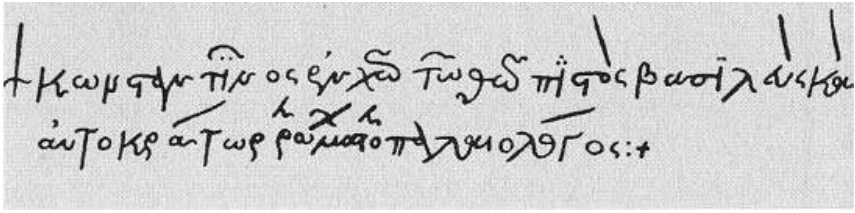 + κωνσταντῖνος ἐν χῶ τῶ θῶ πιστὸς βασιλεὺς καὶ
αὐτοκράτωρ ῥωμαίων ὁ παλαιολόγος:+